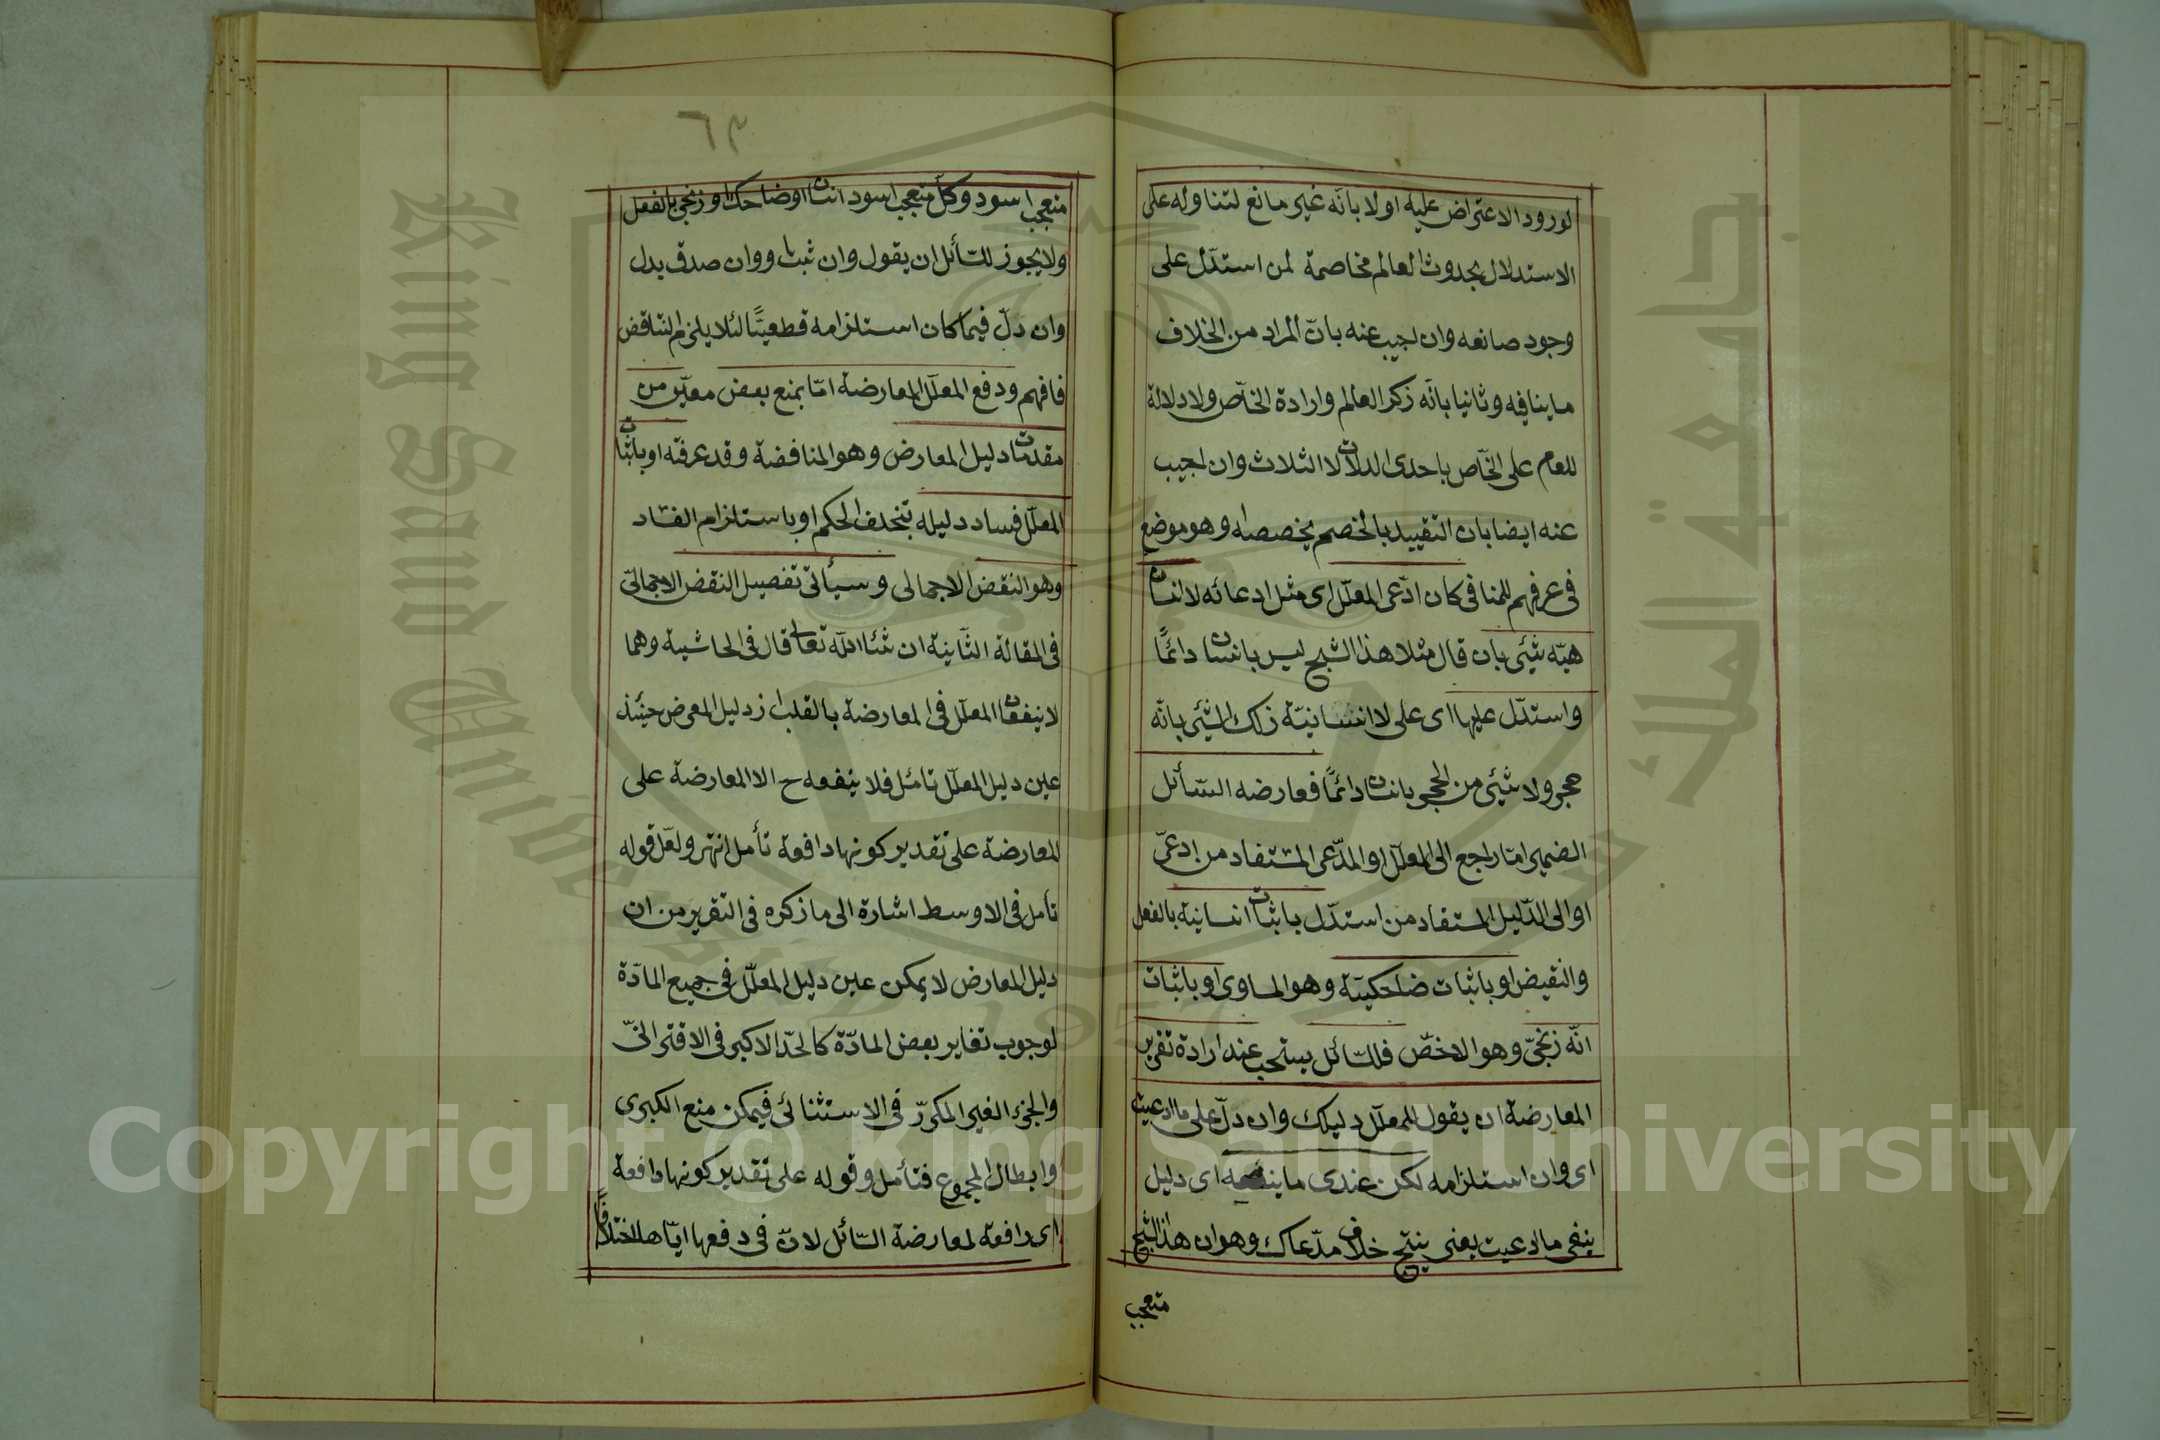 لورود الاعتراض عليه اولا بانه غير مانع لتناوله على
الاستدلال بحدوث العالم مخاصمة لمن استدّل على
وجود صانعه وان اجيب عنه بانّ المراد من الخلاف
ما ينافيه وثانيا بانّه ذكر العالم وارادة الخاّص ولا دلالة
للعام على الخاّص باحدى الدلالات الثلاث وان اجيب
عنه ايضا بان التقييد بالخصم يخصصه وهو موضع
فى عرفهم للمنافى كان ادّعى المعلّل اى مثل ادعائه لا انسا
هيّه شيئ بان قال مثلا هذا الشبح ليس بانسان دائمًا
واستدّل عليها اى على لا انسانيّة ذلك الشيئ بانّه
حجر ولا شيئ من الحجر بانسان دائمًا فعارضه السّأئل
الضمير امّا راجع الى المعلّل او المدّعى المستفاد من ادعىّ
او الى الدّليل المستفاد من استدّل باثبات انسانيته بالفعل
والنقيض او باثبات ضاحكيتّه وهو المساوى او باثبات
انّه زنجىّ وهو الاخصّ فللسّائل يستحب عند ارادة تقرير
المعارضة ان يقول للمعلّل دليلك وان دلّ على ما ادعيت
اى وان استلزامه لكن عندى ما ينفيه اى دليل
ينفى ما ادعيت يعنى ينتج خلاف مدّعاك وهو ان هذا الشبح
متعجب
٦٣
متعجب اسود وكلّ متعجب اسود انسان او ضاحك او زنجى بالفعل
ولا يجوز للسّأئل ان يقول وان ثبت او وان صدق بدل
وان دلّ فيما كان استلزامه قطعيًّا لئلا يلزم التناقض
فافهم ودفع المعلّل المعارضة امّا بمنع بعض معيّن من
مقدمات دليل المعارض وهو المناقضة وقد عرفته او باثبات
المعلّل فساد دليله بتخلف الحكم او باستلزام الفساد
وهو النقض الاجمالى وسيأتى تفصيل النقض الاجمالىّ
فى المقالة الثّانية ان شاء الله تعالى قال فى الحاشية وهما
لا ينفعان المعلّل فى المعارضة بالقلب اذ دليل المعرض حينئذ
عين دليل المعلّل تامّل فلا ينفعه ح الا المعارضة على
المعارضة على تقدير كونها دافعة تأمل انتهر ولعّل قوله
تأمل فى الاوسط اشارة الى ما ذكره فى التقرير من ان
دليل المعارض لا يمكن عين دليل المعلّل فى جميع المادّة
لوجوب تغاير بعض المادّة كالحدّ الاكبر فى الاقترانىّ
والجزء الغير المكرّر فى الاستثنائى فيمكن منع الكبرى
وابطال المجموع فتأمل وقوله على تقدير كونها دافعة
اى دافعة لمعارضة السّائل لانّ فى دفعها ايّاها اختلافًا